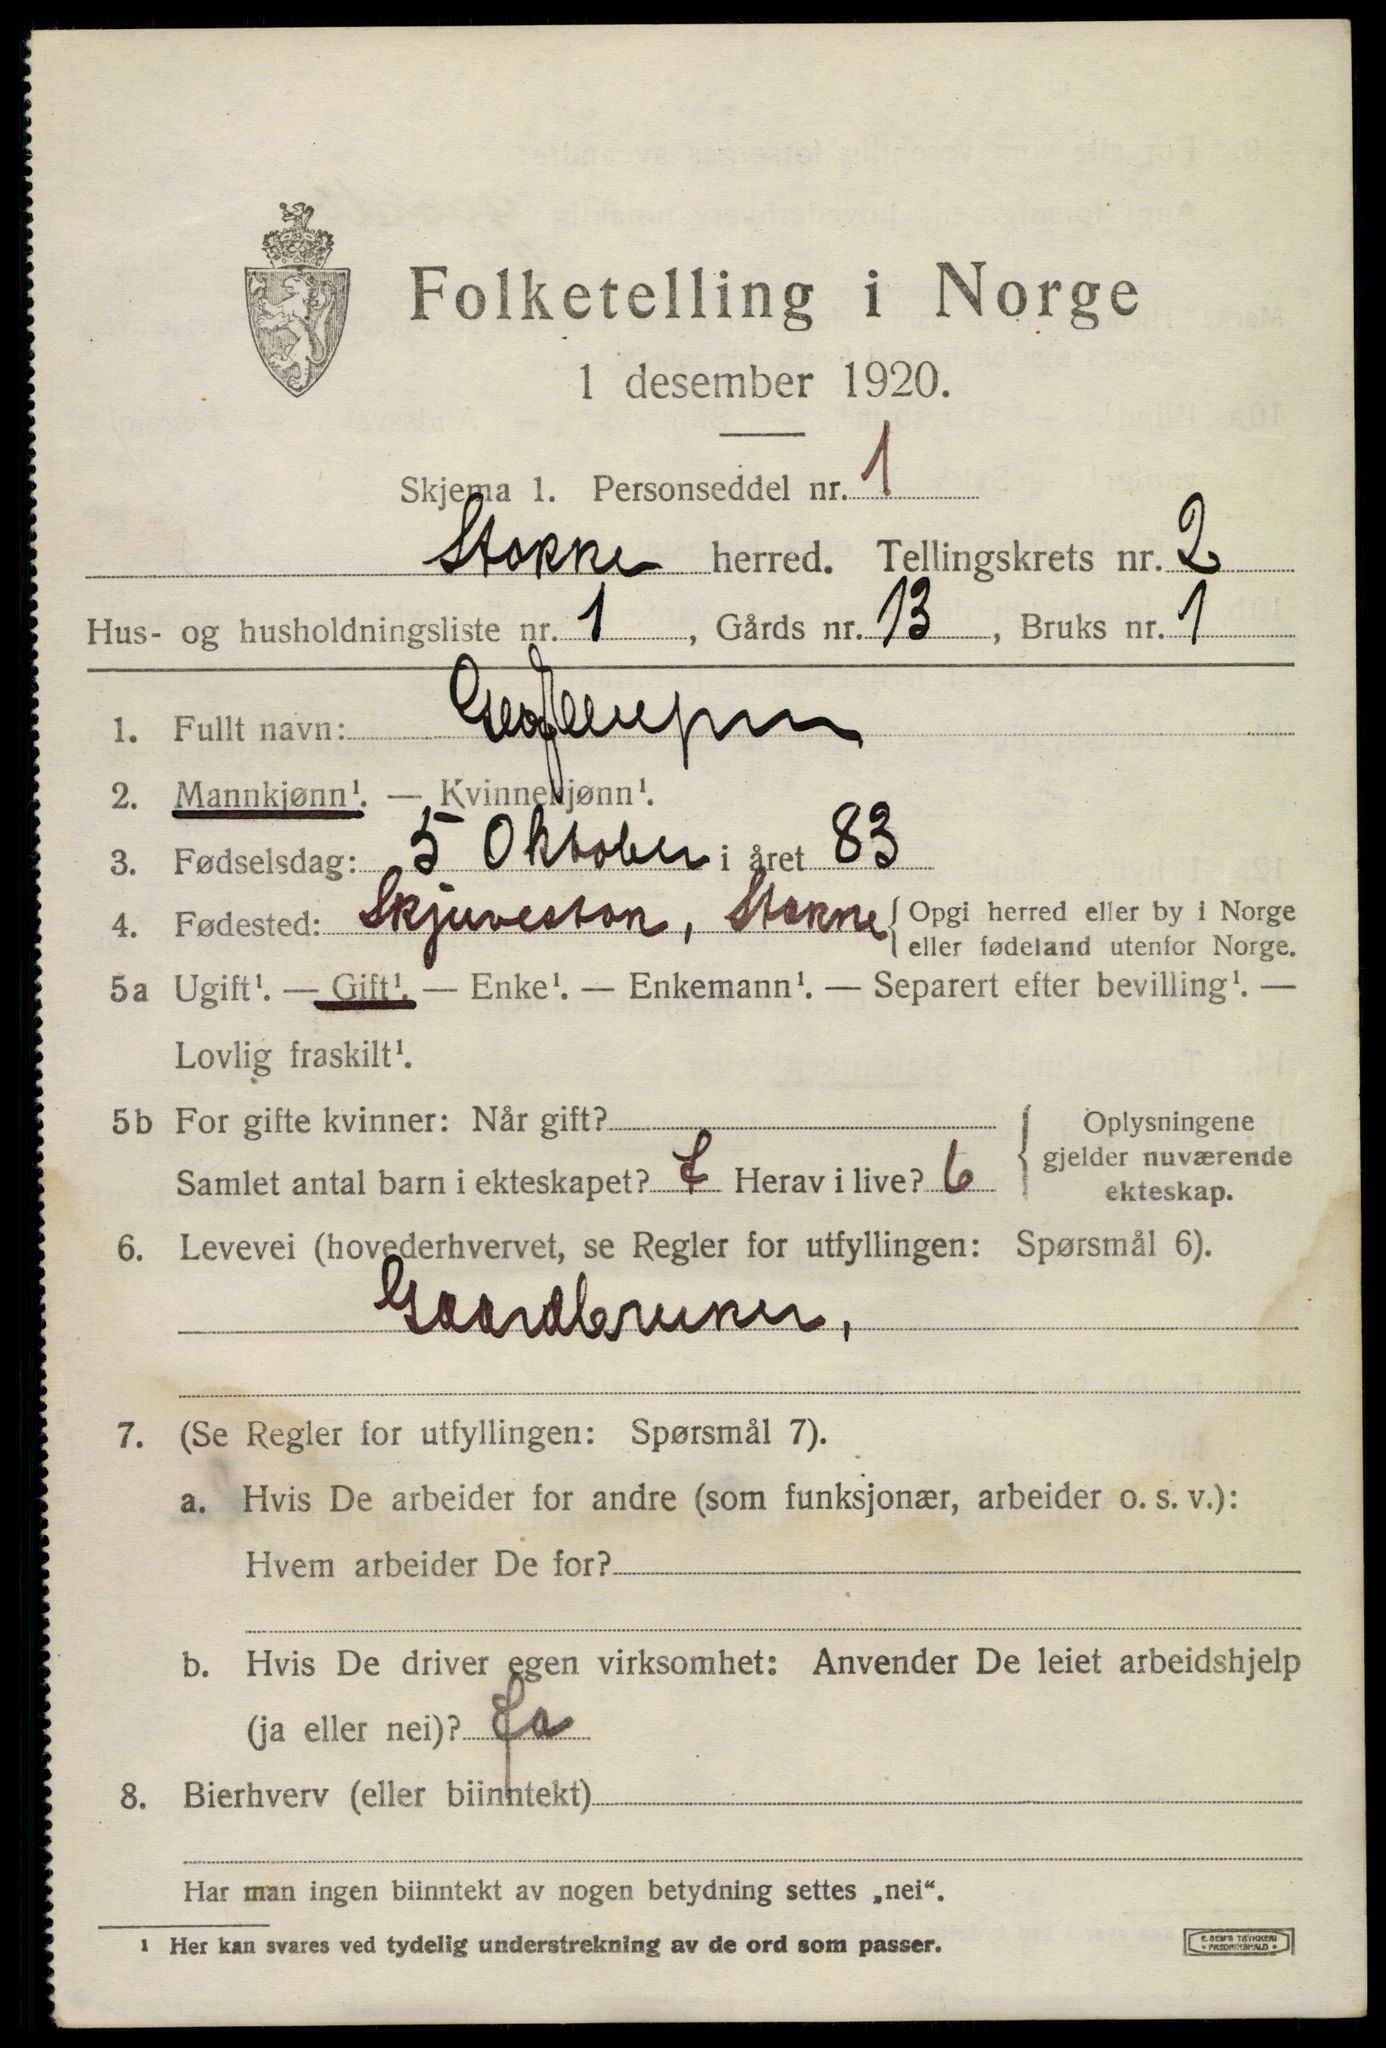 Folketelling i Norge
1 desember 1920.
Skjema 1. Personseddel nr. 1
Stokke herred. Tellingskrets nr. 2
Hus- og husholdningsliste nr. 1, Gårds nr. 13, Bruks nr. 1
1. Fullt navn:
2. Mannkjønn¹. — Kvinnekjønn¹.
3. Fødselsdag: 5 Oktober i året 83
4. Fødested: Skjuveston, Stokke { Opgi herred eller by i Norge
eller fødeland utenfor Norge.
5a Ugift¹. — Gift¹. — Enke¹. — Enkemann¹. — Separert efter bevilling¹. —
Lovlig fraskilt¹.
5b For gifte kvinner: Når gift? { Oplysningene
gjelder nuværende
Samlet antal barn i ekteskapet? 7 Herav i live? 6
ekteskap.
6. Levevei (hovederhvervet, se Regler for utfyllingen: Spørsmål 6).
Gaardbruker,
7. (Se Regler for utfyllingen: Spørsmål 7).
a. Hvis De arbeider for andre (som funksjonær, arbeider o. s. v.):
Hvem arbeider De for?
b. Hvis De driver egen virksomhet: Anvender De leiet arbeidshjelp
(ja eller nei)? Ja
8. Bierhverv (eller biinntekt)
Har man ingen biinntekt av nogen betydning settes „nei“.
¹ Her kan svares ved tydelig understrekning av de ord som passer.
E. SEM'S TRYKKERI
FREDRIKSHALD